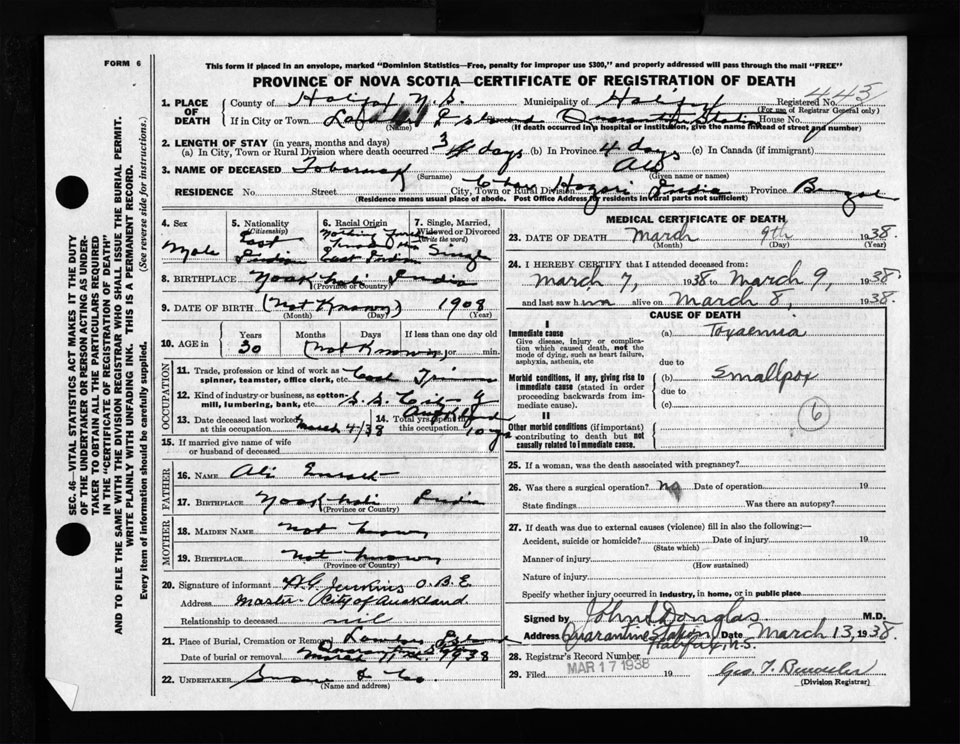 FORM 6
This form if placed in an envelope, marked "Dominion Statistics—Free, penalty for improper use $300," and properly addressed will pass through the mail "FREE"
PROVINCE OF NOVA SCOTIA—CERTIFICATE OF REGISTRATION OF DEATH
SEC. 46—VITAL STATISTICS ACT MAKES IT THE DUTY
OF THE UNDERTAKER OR PERSON ACTING AS UNDER-
TAKER TO OBTAIN ALL THE PARTICULARS REQUIRED
IN THE "CERTIFICATE OF REGISTRATION OF DEATH"
AND TO FILE THE SAME WITH THE DIVISION REGISTRAR WHO SHALL ISSUE THE BURIAL PERMIT.
WRITE PLAINLY WITH UNFADING INK. THIS IS A PERMANENT RECORD.
Every item of information should be carefully supplied. (See reverse side for instructions.)
1. PLACE OF DEATH County of Halifax N.S. Municipality of Halifax Registered No. 443
(For use of Registrar General only)
If in City or Town Island House No.
(Name) (If death occurred in a hospital or institution, give the name instead of street and number)
2. LENGTH OF STAY (in years, months and days)
(a) In City, Town or Rural Division where death occurred 3 days (b) In Province 4 days (c) In Canada (if immigrant)
3. NAME OF DECEASED Ali
(Surname) (Given name or names)
RESIDENCE No. Street City, Town or Rural Division India Province
(Residence means usual place of abode. Post Office Address for residents in rural parts not sufficient)
4. Sex Male
5. Nationality (Citizenship) East Indian
6. Racial Origin East Indian
7. Single, Married, Widowed or Divorced (Write the word) Single
8. BIRTHPLACE India
(Province or Country)
9. DATE OF BIRTH (Not Known) 1908
(Month) (Day) (Year)
10. AGE in Years 30 Months Days (Not Known) If less than one day old hrs. or min.
OCCUPATION
11. Trade, profession or kind of work as spinner, teamster, office clerk, etc. Coal
12. Kind of industry or business, as cotton-mill, lumbering, bank, etc. S.S. City of Auckland
13. Date deceased last worked at this occupation March 4/38
14. Total yrs. spent in this occupation 10 yrs
15. If married give name of wife or husband of deceased
FATHER
16. NAME Ali
17. BIRTHPLACE India
(Province or Country)
MOTHER
18. MAIDEN NAME not known
19. BIRTHPLACE not known
(Province or Country)
20. Signature of informant Jenkins O.B.E.
Address Master City of Auckland.
Relationship to deceased nil
21. Place of Burial, Cremation or Removal Island
Date of burial or removal March 1938
22. UNDERTAKER Snow & Co.
(Name and address)
MEDICAL CERTIFICATE OF DEATH
23. DATE OF DEATH March 9th 1938.
(Month) (Day) (Year)
24. I HEREBY CERTIFY that I attended deceased from:
March 7, 1938 to March 9, 1938
and last saw him alive on March 8, 1938.
CAUSE OF DEATH
I
Immediate cause (a) Toxaemia
Give disease, injury or complication which caused death, not the mode of dying, such as heart failure, asphyxia, asthenia, etc
due to
Morbid conditions, if any, giving rise to immediate cause (stated in order proceeding backwards from immediate cause). (b) Smallpox
due to
(c)
6
II
Other morbid conditions (if important) contributing to death but not causally related to immediate cause.
25. If a woman, was the death associated with pregnancy?
26. Was there a surgical operation? no Date of operation 19
State findings Was there an autopsy?
27. If death was due to external causes (violence) fill in also the following:—
Accident, suicide or homicide? Date of injury 19
(State which)
Manner of injury
(How sustained)
Nature of injury
Specify whether injury occurred in industry, in home, or in public place
Signed by John Douglas M.D.
Address Quarantine Station Halifax, N.S. Date March 13, 1938.
28. Registrar's Record Number
29. Filed MAR 17 1938 19 Geo. T.
(Division Registrar)